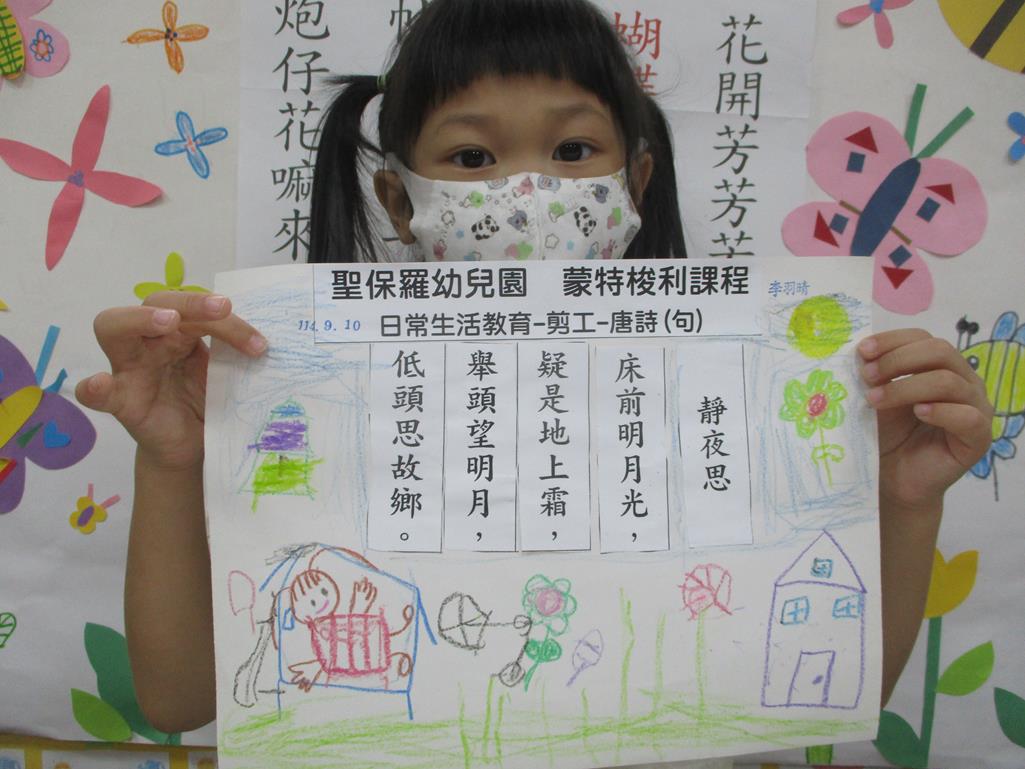 炮仔花嘛來
花開芳芳
聖保羅幼兒園 蒙特梭利課程
李羽晴
114.9.10
日常生活教育-剪工-唐詩(句)
靜夜思
床前明月光，
疑是地上霜，
舉頭望明月，
低頭思故鄉。